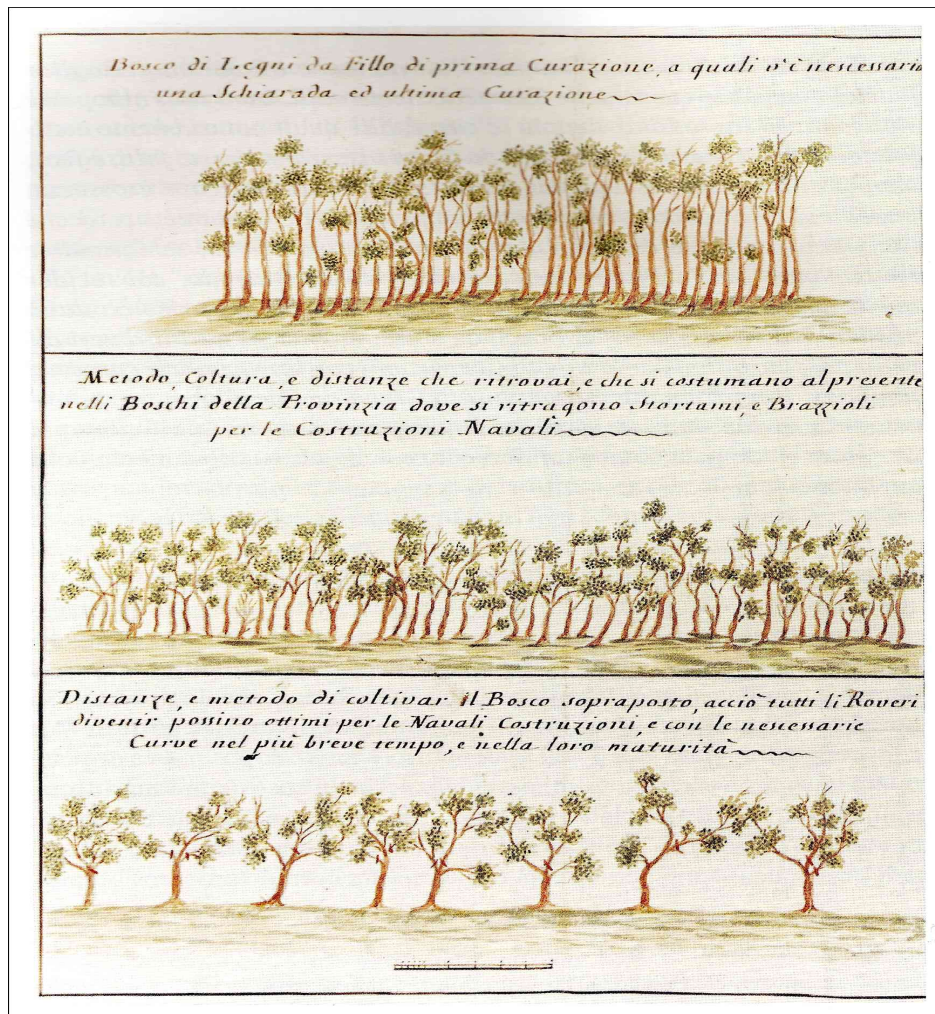 Bosco di Legni da Fillo di prima Curazione, a quali v'è nescessario
una Schiarada ed ultima Curazione
Metodo, Coltura, e distanze che ritrovai, e che si costumano al presente
nelli Boschi della Provinzia dove si ritragono Stortami, e Brazzioli
per le Costruzioni Navali
Distanze, e metodo di coltivar il Bosco sopraposto, acciò tutti li Roveri
divenir possino ottimi per le Navali Costruzioni, e con le nescessarie
Curve nel più breve tempo, e nella loro maturità